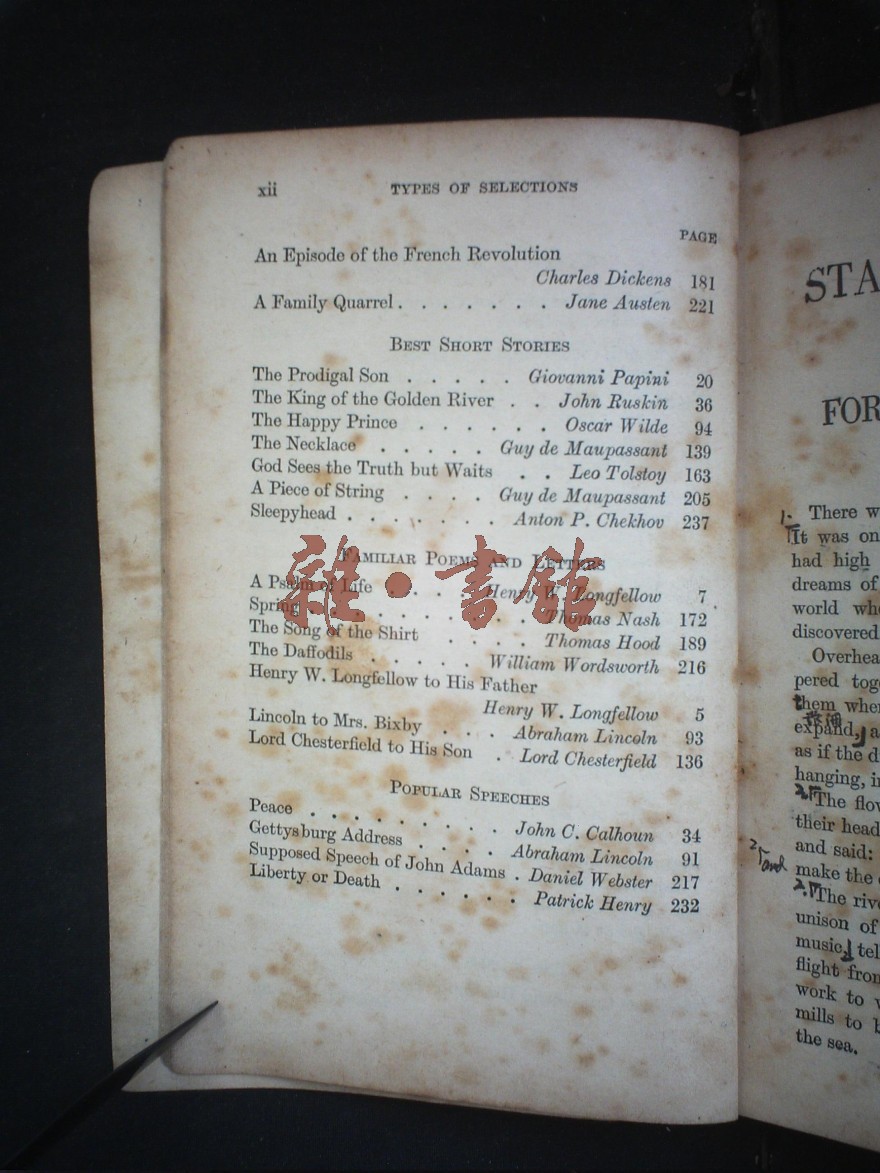 xii TYPES OF SELECTIONS
PAGE
An Episode of the French Revolution
Charles Dickens 181
A Family Quarrel . . . . . . . Jane Austen 221
BEST SHORT STORIES
The Prodigal Son . . . . . Giovanni Papini 20
The King of the Golden River . . John Ruskin 36
The Happy Prince . . . . . . Oscar Wilde 94
The Necklace . . . . . Guy de Maupassant 139
God Sees the Truth but Waits . . Leo Tolstoy 163
A Piece of String . . . . Guy de Maupassant 205
Sleepyhead . . . . . . . Anton P. Chekhov 237
FAMILIAR POEMS AND LETTERS
A Psalm of Life . . . Henry W. Longfellow 7
Spring . . . . . . . . . . Thomas Nash 172
The Song of the Shirt . . . . Thomas Hood 189
The Daffodils . . . . . William Wordsworth 216
Henry W. Longfellow to His Father
Henry W. Longfellow 5
Lincoln to Mrs. Bixby . . . Abraham Lincoln 93
Lord Chesterfield to His Son . Lord Chesterfield 136
POPULAR SPEECHES
Peace . . . . . . . . . John C. Calhoun 34
Gettysburg Address . . . . Abraham Lincoln 91
Supposed Speech of John Adams . Daniel Webster 217
Liberty or Death . . . . . . Patrick Henry 232
雜·書館
STA
FOR
There w
It was on
had high
dreams of
world wh
discovered
Overhea
pered toge
them when
expand, a
as if the d
hanging, in
The flow
their head
and said:
make the
The rive
unison of
music, tel
flight from
work to
mills to b
the sea.